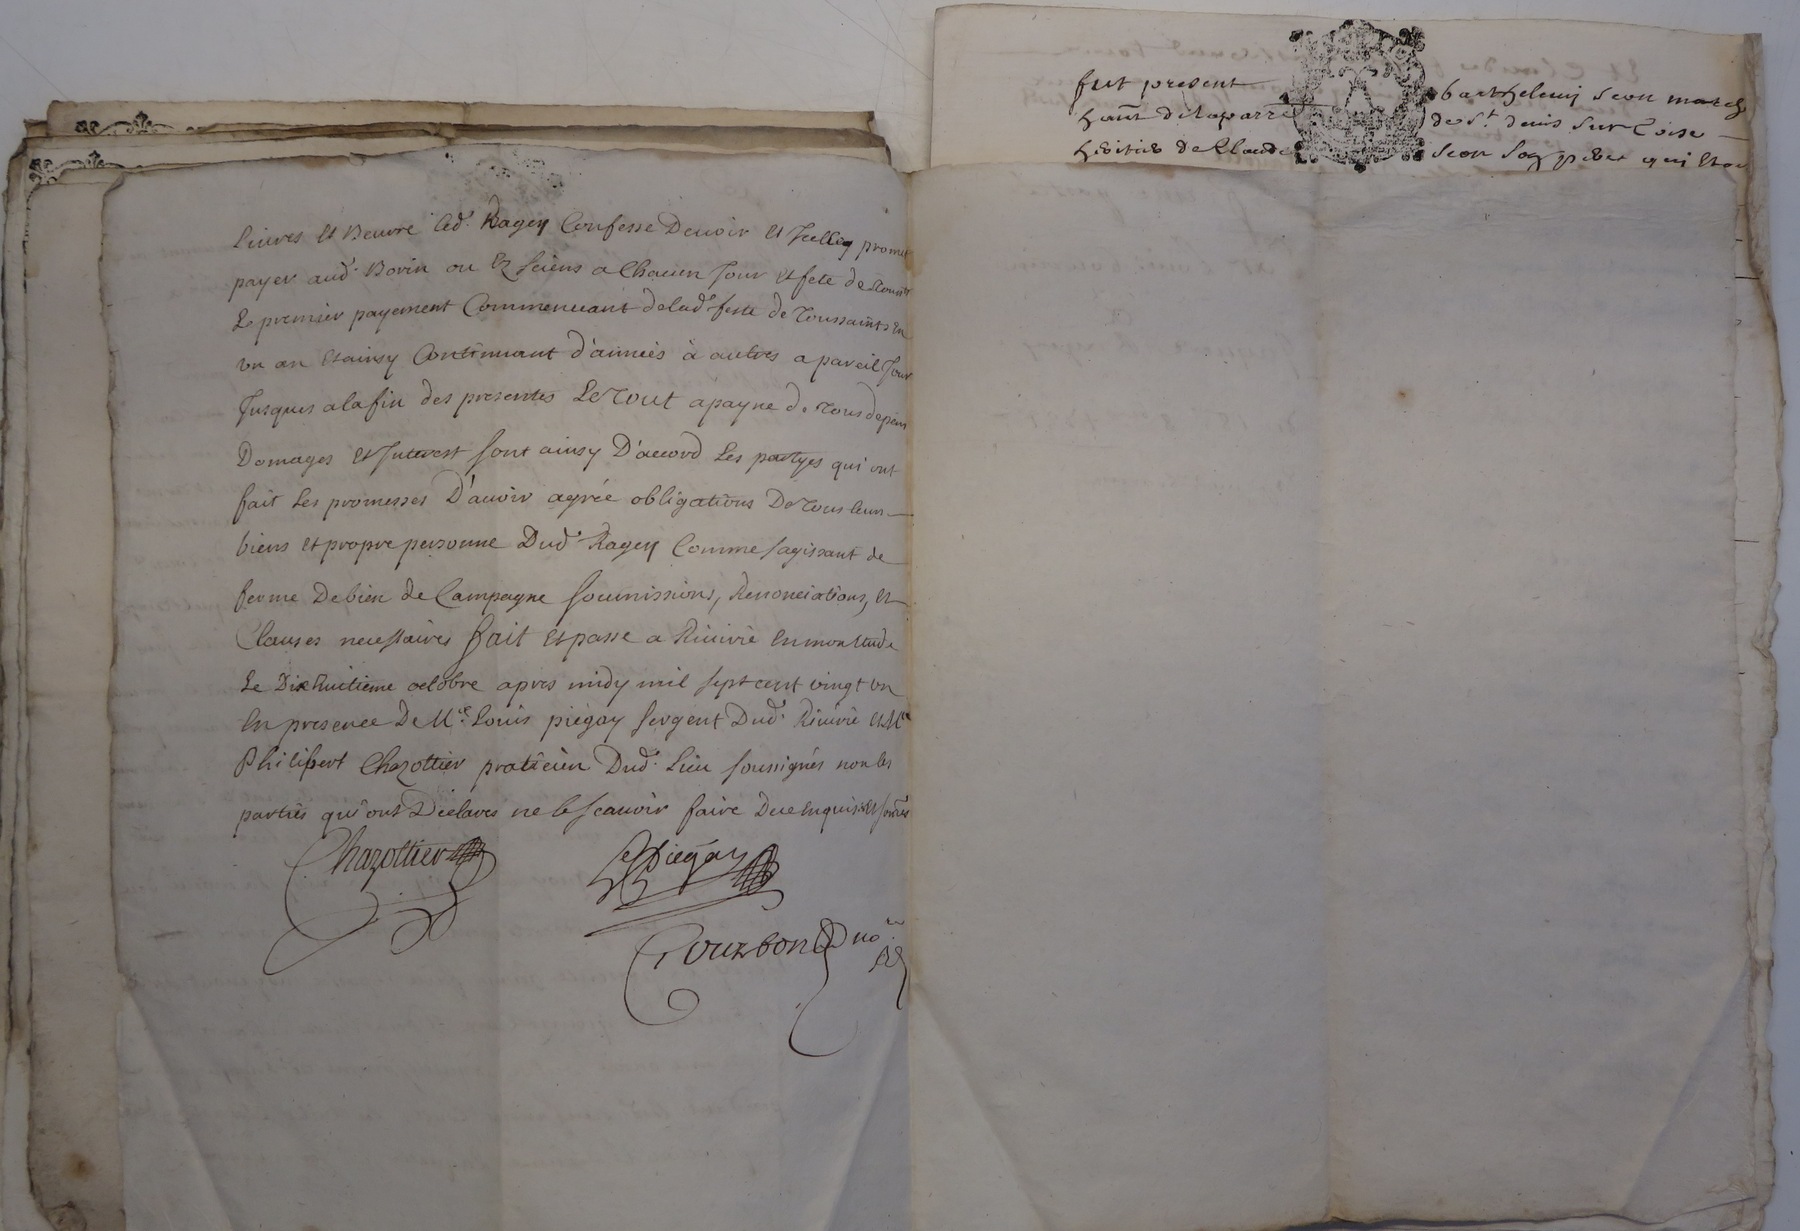 Livres et Beurre led. Ragey Confesse Devoir et Icelluy promet
payer aud. Borin ou Ez siens a Chacun Jour et fete de Touss.ts
Le premier payement Commencant delad.e feste de Toussaints En
un an Et ainsy Continuant d'annéés à autres a pareil Jour
Jusques a la fin des presentes Le Tout a payne de Tous depens
Domages et Interest sont ainsy D'accord Les partyes qui ont
fait Les promesses D'avoir agréé obligations De Tous leurs
biens et propre personne Dud. Ragey Comme sagissant de
ferme De bien de Campagne soumissions, Renonciations, et
Clauses necessaires fait Et passe a Riviriè En mon Etude
Le Dixhuitieme octobre apres midy mil sept cent vingt un
En presence De M.re Louis piégay sergent Dud. Riviriè et M.re
Philibert Chazottier praticien Dud. Lieu soussignés non les
parties qui ont Déclarés ne le scavoir faire De ce Enquis et
Chazottier
Piegay
Gourbon no.re
fut present barthelemy seon march
hant de la parr de St denis sur Coise
heritier de Claude seon son pere qui